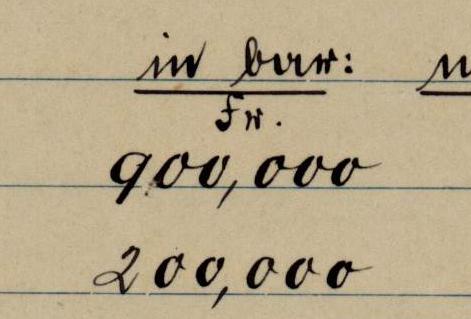 in bar:
Fr.
900,000
200,000